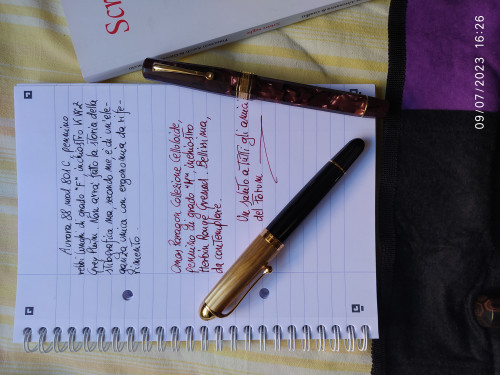 Aurora 88 mod 801 C, pennino
rebbi lunghi di grado "F", inchiostro KWZ
Grey Plum. Non avrà fatto la storia della
stilografica ma, secondo me, è di un'ele-
ganza unica con ergonomia da rife-
rimento.
Omas Paragon Collezione Celluloide,
pennino di grado "M", inchiostro
Herbin Rouge Grenat. Bellissima,
da contemplare.
Un saluto a tutti gli amici
del forum
Scr
09/07/2023 16:26